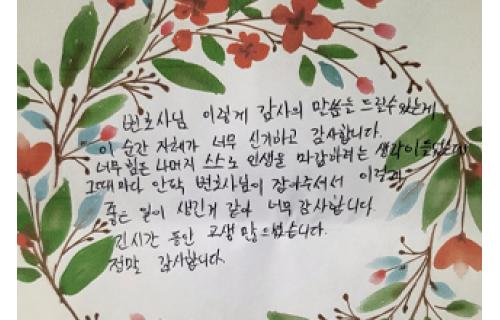 변호사님 이렇게 감사의 말씀을 드릴수있는게
이 순간 자체가 너무 신기하고 감사합니다.
너무 힘든 나머지 스스로 인생을 마감하려는 생각이들었는데
그때마다 안닥 변호사님이 잡아주셔서 이렇게
좋은 일이 생긴거 같아 너무 감사합니다.
긴시간 동안 고생 많으셨습니다.
정말 감사합니다.